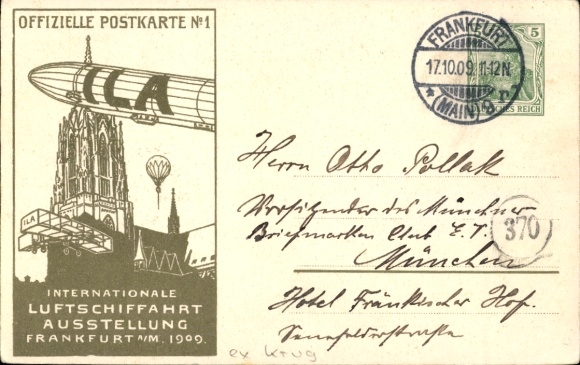 OFFIZIELLE POSTKARTE No 1
ILA
ILA
INTERNATIONALE
LUFTSCHIFFAHRT
AUSSTELLUNG
FRANKFURT A/M. 1909.
FRANKFURT
17.10.09 11-12N
(MAIN) 9
5
DEUTSCHES REICH
Herrn Otto Pollak
Vorsitzender des Münchner
Briefmarken Club E. V.
München
370
Hotel Fränkischer Hof.
Senefelderstraße
ex Krug